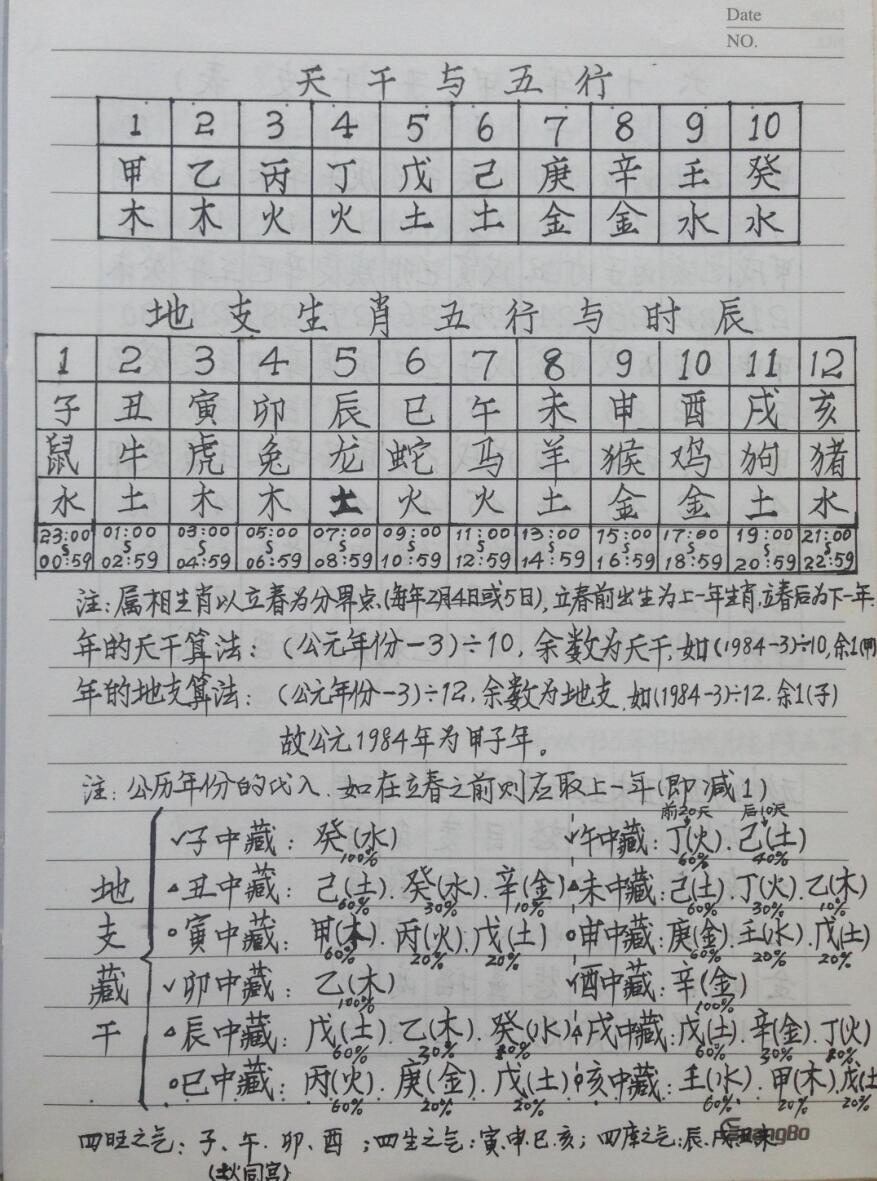 Date
NO.
天干与五行
1 2 3 4 5 6 7 8 9 10
甲 乙 丙 丁 戊 己 庚 辛 壬 癸
木 木 火 火 土 土 金 金 水 水
地支生肖五行与时辰
1 2 3 4 5 6 7 8 9 10 11 12
子 丑 寅 卯 辰 巳 午 未 申 酉 戌 亥
鼠 牛 虎 兔 龙 蛇 马 羊 猴 鸡 狗 猪
水 土 木 木 土 火 火 土 金 金 土 水
23:00 01:00 03:00 05:00 07:00 09:00 11:00 13:00 15:00 17:00 19:00 21:00
00:59 02:59 04:59 06:59 08:59 10:59 12:59 14:59 16:59 18:59 20:59 22:59
注:属相生肖以立春为分界点,(每年2月4日或5日),立春前出生为上一年生肖,立春后为下一年.
年的天干算法:(公元年份-3)÷10,余数为天干,如(1984-3)÷10,余1(甲)
年的地支算法:(公元年份-3)÷12,余数为地支,如(1984-3)÷12.余1(子)
故公元1984年为甲子年。
注:公历年份的代入.如在立春之前则应取上一年(即减1)
前20天 后10天
子中藏:癸(水) 午中藏:丁(火).己(土)
100% 60% 40%
丑中藏:己(土).癸(水).辛(金) 未中藏:己(土).丁(火).乙(木)
60% 30% 10% 60% 30% 10%
寅中藏:甲(木).丙(火).戊(土) 申中藏:庚(金).壬(水).戊(土)
60% 20% 20% 60% 20% 20%
卯中藏:乙(木) 酉中藏:辛(金)
100% 100%
辰中藏:戊(土).乙(木).癸(水) 戌中藏:戊(土).辛(金).丁(火)
60% 30% 60% 30%
巳中藏:丙(火).庚(金).戊(土) 亥中藏:壬(水).甲(木).戊(土
60% 20% 20% 60% 20% 20%
地支藏干
四旺之气:子、午、卯、酉;四生之气:寅.申.巳.亥;四库之气:辰.戌.丑.未
(土火同宫)